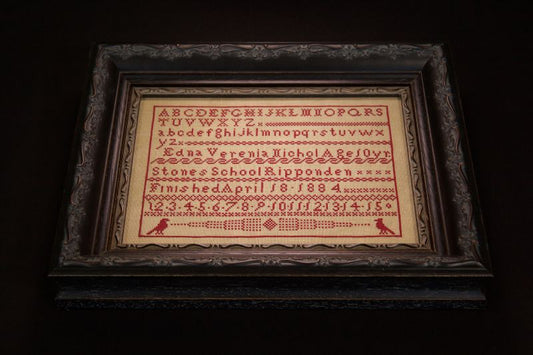 ABCDEFGHIJKLMNOPQRS
TUVWXYZ
abcdefghijklmnopqrstuvwx
yz
Edna Verenia Nichol Age 10 yr
Stones School Ripponden
Finished April 18·1884
12·3·4·5·6·7·8·9·1011121314·15